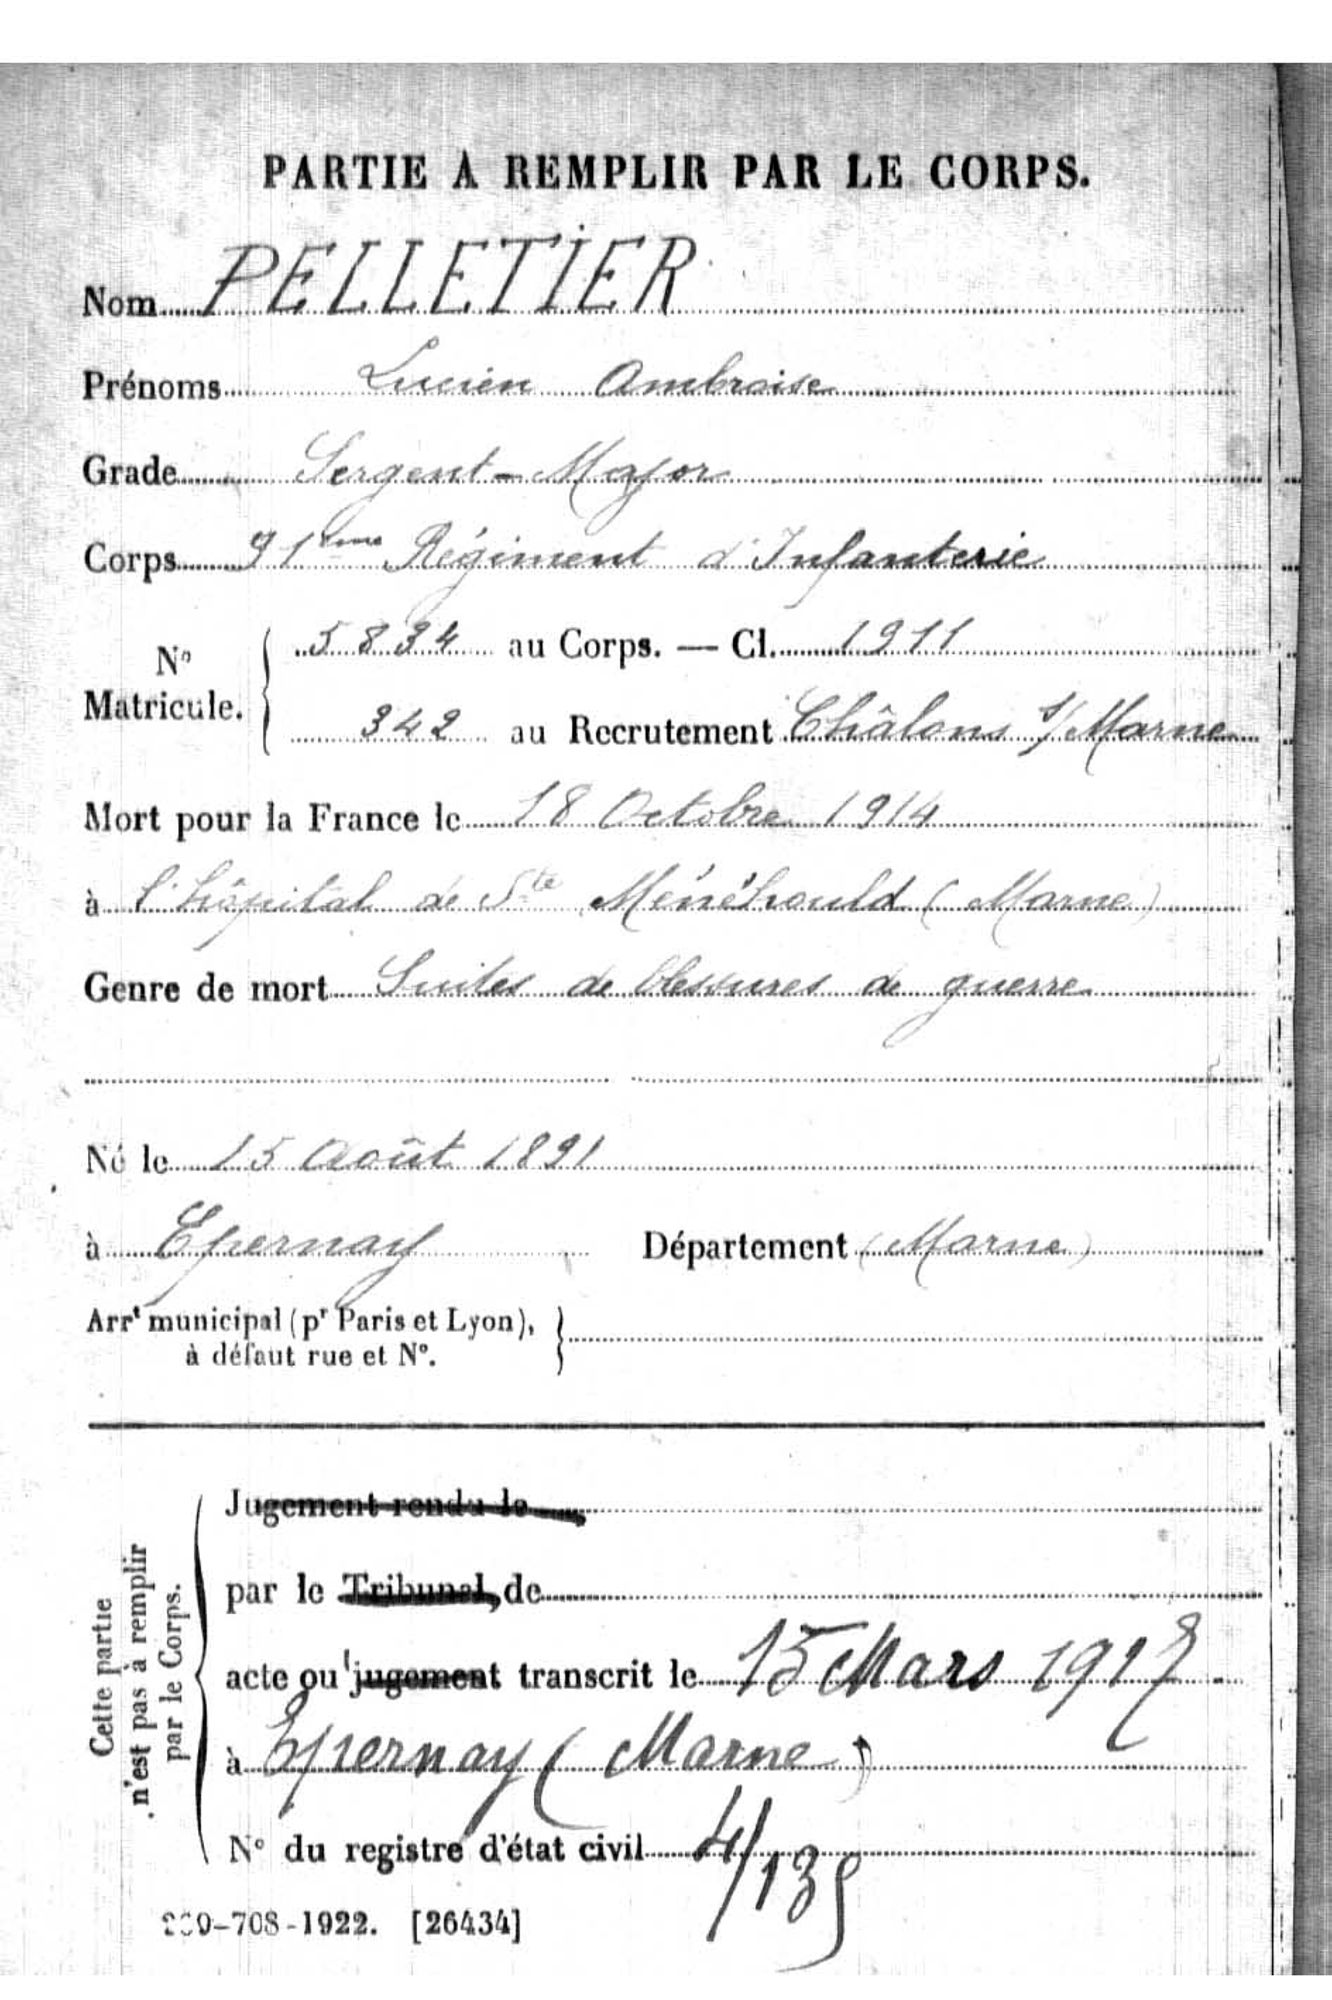 PARTIE A REMPLIR PAR LE CORPS.
Nom PELLETIER
Prénoms Lucien Ambroise
Grade Sergent-Major
Corps 91ème Régiment d'Infanterie
N° Matricule. 5834 au Corps. — Cl. 1911
342 au Recrutement Châlons s/Marne
Mort pour la France le 18 Octobre 1914
à l'hôpital de Ste Ménéhould (Marne)
Genre de mort Suites de blessures de guerre
Né le 15 Août 1891
à Epernay Département (Marne)
Arrt municipal (pr Paris et Lyon),
à défaut rue et N°.
Cette partie
n'est pas à remplir
par le Corps.
Jugement rendu le
par le Tribunal de
acte ou jugement transcrit le 15 Mars 1917
à Epernay (Marne)
N° du registre d'état civil 4/135
-708-1922. [26434]